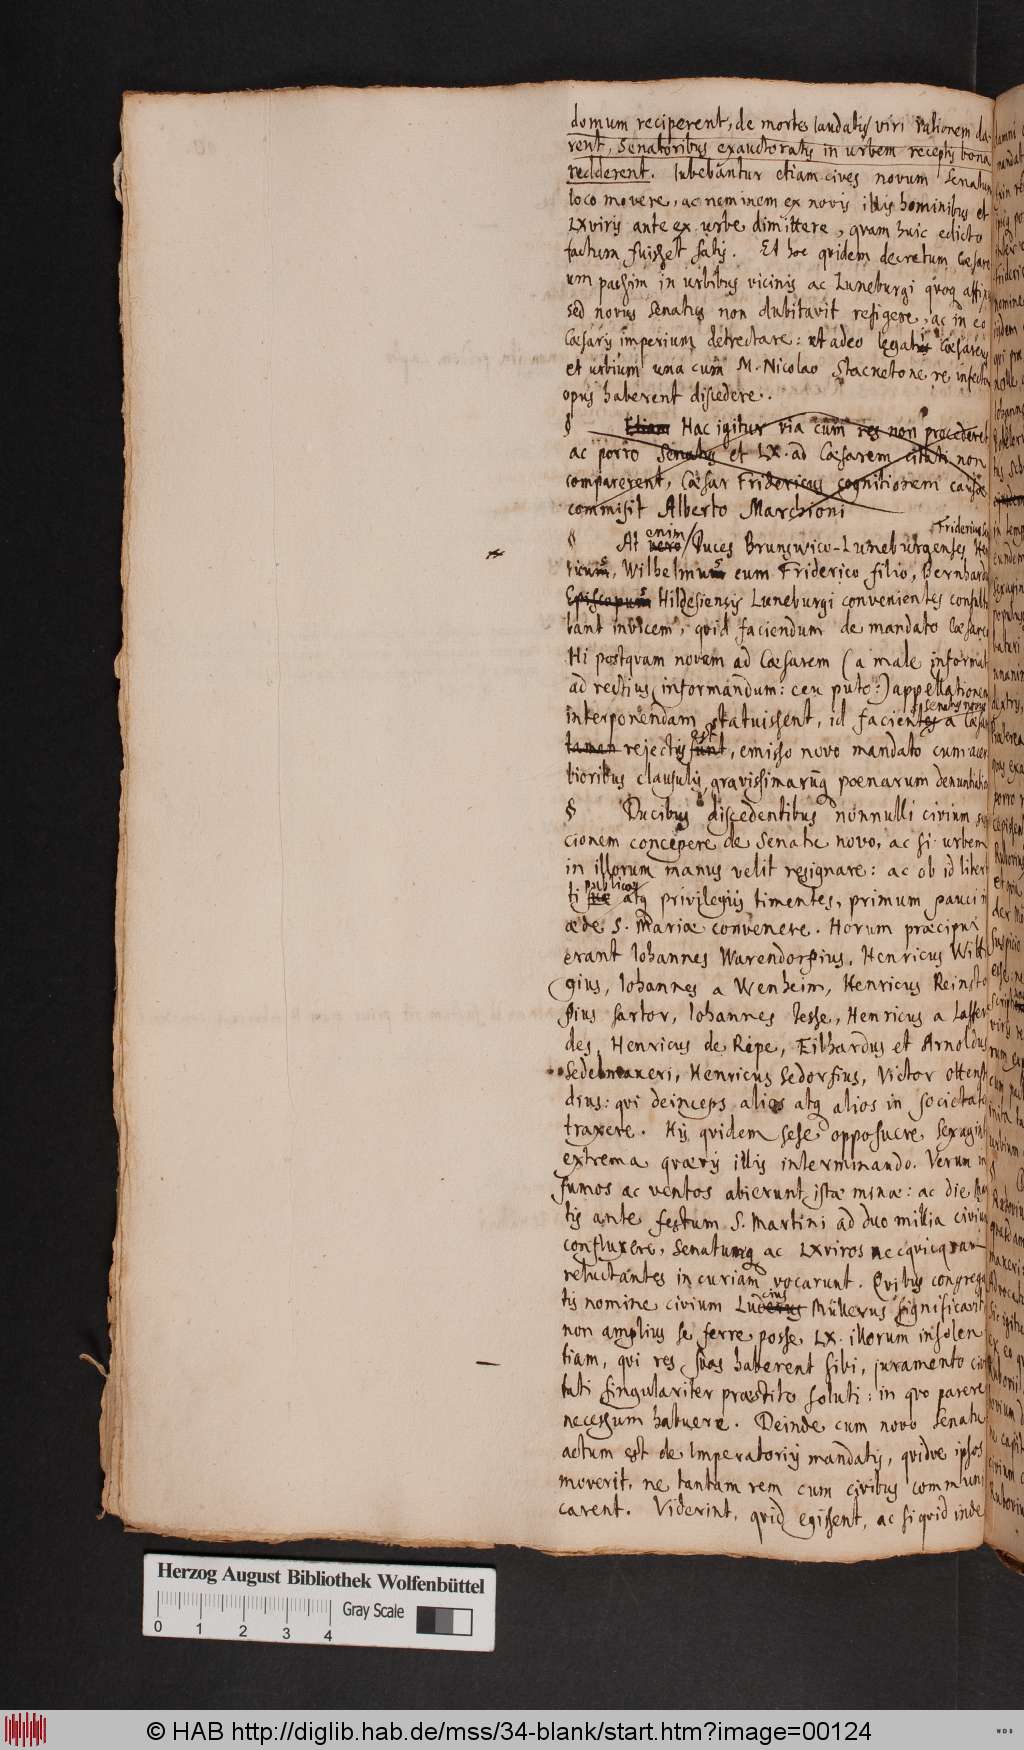 domum reciperent, de morte laudatis viri rationem da-
rent, Senatoribus exauctoratis in urbem receptis bona
redderent. Iubebantur etiam cives novum Senatum
loco movere, ac neminem ex novis illis hominibus et
LXviris ante ex urbe dimittere, quam huic edicto
factum fuisset satis. Et hoc quidem decretum Caesare
um passim in urbibus vicinis ac Luneburgi quoq affix
sed novus Senatus non dubitavit refigere, ac in eo
Caesaris imperium detrectare: ut adeo legatis Caesareis
et urbium una cum M. Nicolao Stocketone re infecta
opus haberent discedere.
§ Etiam Hac igitur via cum res non procederet
ac porro Senatus et LX. ad Caesarem citati non
comparerent, Caesar Fridericus cognitionem causae
commisit Alberto Marchioni
Fridericus
enim
§ At vero Duces Brunswico-Luneburgenses, Hen
ricus, Wilhelmus cum Friderico filio, Bernhard
Episcopus Hildesiensis Luneburgi convenientes consult
bant invicem, quid faciendum de mandato Caesareo
Hi postquam novam ad Caesarem (a male informat
ad rectius informandum: ceu puto:) appellationem
senatus novus
interponendam statuissent, id facientes a Caesar
est
tamen rejectis sunt, emisso novo mandato cum acer
bioribus clausulis, gravissimarumq poenarum denuntiatio
§ Ducibus discedentibus nonnulli civium sus
cionem concepere de Senatu novo, ac si urbem
in illorum manus velit resignare: ac ob id liber
publicae
ti suae atq privilegiis timentes, primum pauci in
aede S. Mariae convenere. Horum praecipui
erant Iohannes Warendorpius, Henricus Witti
gius, Iohannes a Wenheim, Henricus Reinsto
pius sartor, Iohannes Jesse, Henricus a Laffer
des, Henricus de Ripe, Eilhardus et Arnoldus
Sedelmaeri, Henricus Sedorfius, Victor Ottens
dius: qui deinceps alios atq alios in societate
traxere. His quidem sese opposuere Sexagint
extrema quaevis illis interminando. Verum in
fumos ac ventos abierunt istae minae: ac die Mar
tis ante festum S. Martini ad duo millia civium
confluxere, Senatumq ac LXviros necquicquam
reluctantes in curiam vocarunt. Quibus congrega
cius
tis nomine civium Luderus Müllerus significavit
non amplius se ferre posse LX. illorum insolen
tiam, qui res suas haberent sibi, juramento civi
tati singulariter praestito soluti: in quo parere
necessum habuere. Deinde cum novo Senatu
actum est de Imperatoriis mandatis, quidve ipsos
moverit, ne tantam rem cum civibus communi
carent. Viderint, quid egissent, ac si quid inde
Herzog August Bibliothek Wolfenbüttel
Gray Scale
0 1 2 3 4
© HAB http://diglib.hab.de/mss/34-blank/start.htm?image=00124